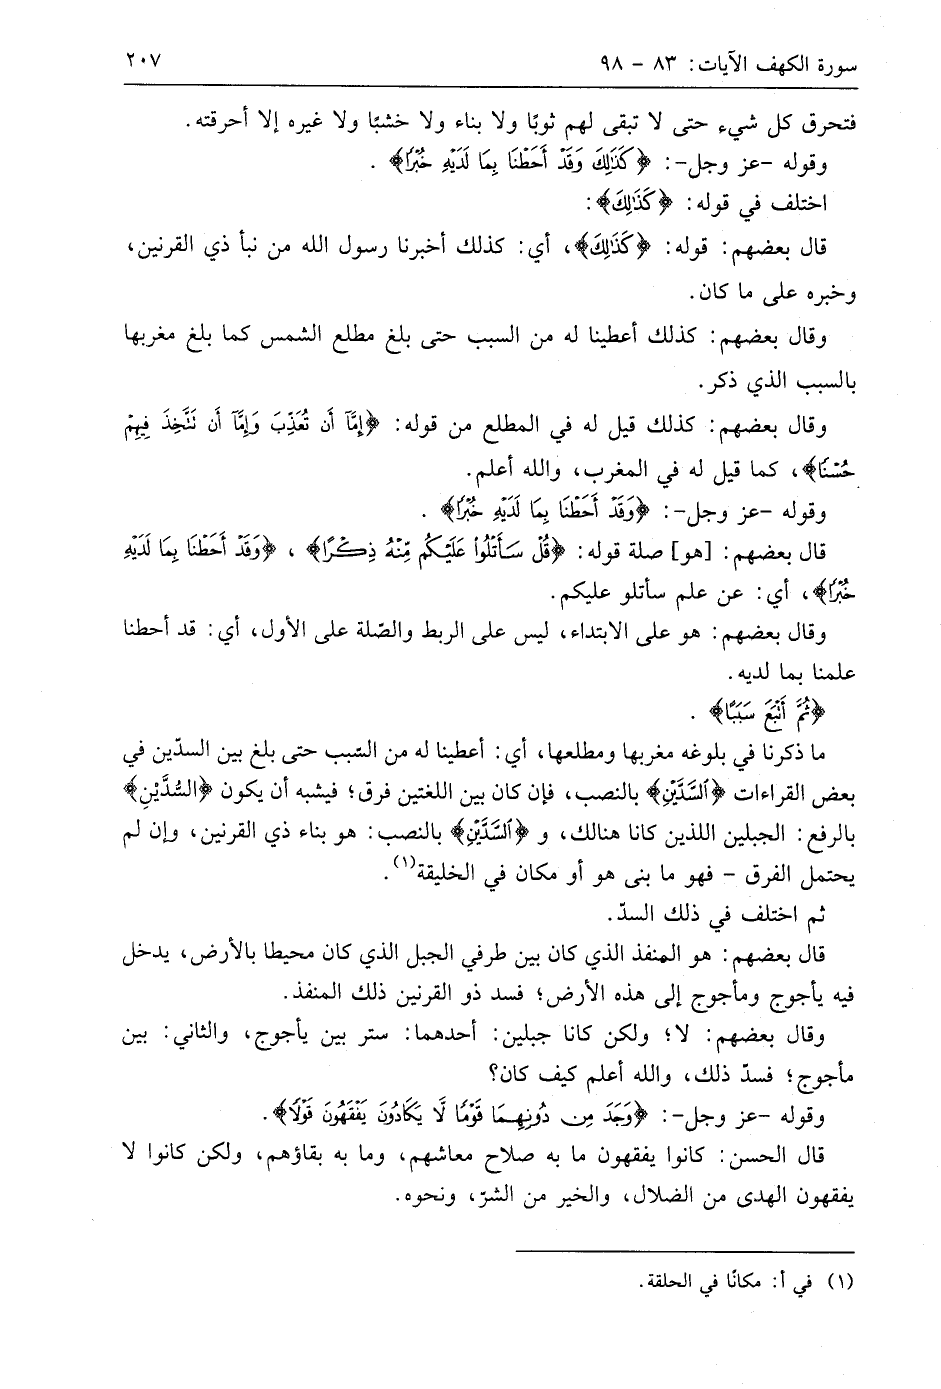 سورة الكهف الآيات: ٨٣ - ٩٨ ٢٠٧
فتحرق كل شيء حتى لا تبقى لهم ثوبًا ولا بناء ولا خشبًا ولا غيره إلا أحرقته.
وقوله -عز وجل-: ﴿كَذَٰلِكَ وَقَدْ أَحَطْنَا بِمَا لَدَيْهِ خُبْرًا﴾ .
اختلف في قوله: ﴿كَذَٰلِكَ﴾:
قال بعضهم: قوله: ﴿كَذَٰلِكَ﴾، أي: كذلك أخبرنا رسول الله من نبأ ذي القرنين،
وخبره على ما كان.
وقال بعضهم: كذلك أعطينا له من السبب حتى بلغ مطلع الشمس كما بلغ مغربها
بالسبب الذي ذكر.
وقال بعضهم: كذلك قيل له في المطلع من قوله: ﴿إِمَّآ أَن تُعَذِّبَ وَإِمَّآ أَن تَتَّخِذَ فِيهِمْ
حُسْنًا﴾، كما قيل له في المغرب، والله أعلم.
وقوله -عز وجل-: ﴿وَقَدْ أَحَطْنَا بِمَا لَدَيْهِ خُبْرًا﴾ .
قال بعضهم: [هو] صلة قوله: ﴿قُلْ سَأَتْلُوا۟ عَلَيْكُم مِّنْهُ ذِكْرًا﴾ ، ﴿وَقَدْ أَحَطْنَا بِمَا لَدَيْهِ
خُبْرًا﴾، أي: عن علم سأتلو عليكم.
وقال بعضهم: هو على الابتداء، ليس على الربط والصّلة على الأول، أي: قد أحطنا
علمنا بما لديه.
﴿ثُمَّ أَتْبَعَ سَبَبًا﴾ .
ما ذكرنا في بلوغه مغربها ومطلعها، أي: أعطينا له من السّبب حتى بلغ بين السدّين في
بعض القراءات ﴿ٱلسَّدَّيْنِ﴾ بالنصب، فإن كان بين اللغتين فرق؛ فيشبه أن يكون ﴿السُّدَّيْنِ﴾
بالرفع: الجبلين اللذين كانا هنالك، و ﴿ٱلسَّدَّيْنِ﴾ بالنصب: هو بناء ذي القرنين، وإن لم
يحتمل الفرق - فهو ما بنى هو أو مكان في الخليقة(١).
ثم اختلف في ذلك السدّ.
قال بعضهم: هو المنفذ الذي كان بين طرفي الجبل الذي كان محيطا بالأرض، يدخل
فيه يأجوج ومأجوج إلى هذه الأرض؛ فسد ذو القرنين ذلك المنفذ.
وقال بعضهم: لا؛ ولكن كانا جبلين: أحدهما: ستر بين يأجوج، والثاني: بين
مأجوج؛ فسدّ ذلك، والله أعلم كيف كان؟
وقوله -عز وجل-: ﴿وَجَدَ مِن دُونِهِمَا قَوْمًا لَّا يَكَادُونَ يَفْقَهُونَ قَوْلًا﴾.
قال الحسن: كانوا يفقهون ما به صلاح معاشهم، وما به بقاؤهم، ولكن كانوا لا
يفقهون الهدى من الضلال، والخير من الشرّ، ونحوه.
(١) في أ: مكانًا في الحلقة.